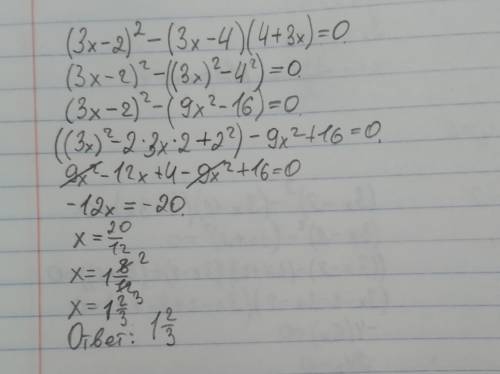 (3x-2)² - (3x-4)(4+3x)=0
(3x-2)² - ((3x)²-4²)=0
(3x-2)² - (9x²-16)=0
((3x)²-2·3x·2+2²) - 9x²+16=0
9x²-12x+4-9x²+16=0
-12x=-20
x=20/12
x=1 8/12 2 3
x=1 2/3
Ответ: 1 2/3